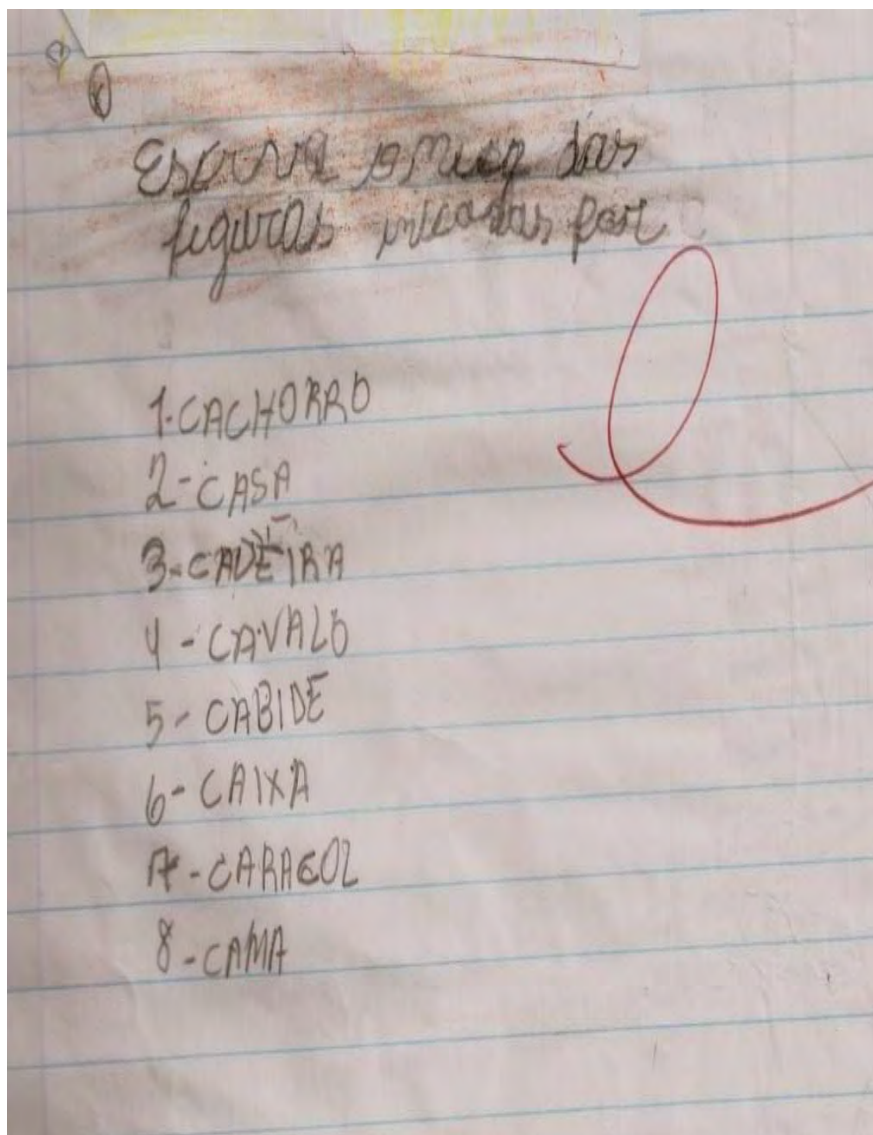 Escreva das
figuras par
1-CACHORRO
2-CASA
3-CADEIRA
4-CAVALO
5-CABIDE
6-CAIXA
7-CARACOL
8-CAMA